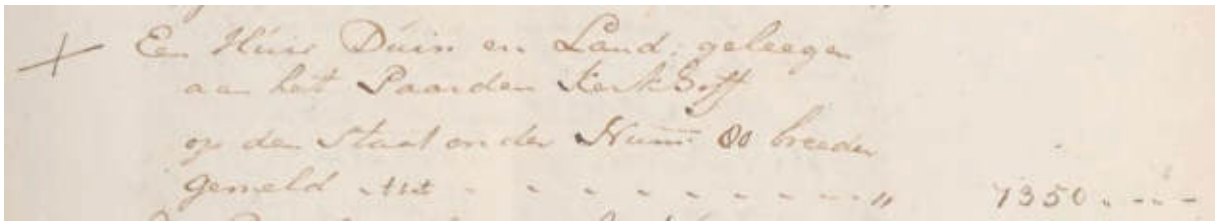 Een Huis Duin en Land, geleegen
aan het Paarden Kerkhoff
op den Staat onder Num 80 breeder
gemeld - - - - - - - - „ 1350 . - - -